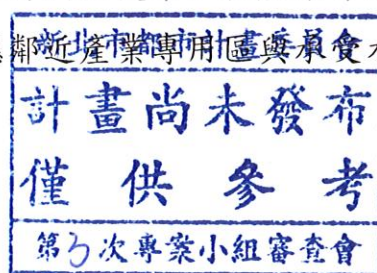 鄰近產業專用區與承受
新北市都市計畫委員會
計畫尚未發布
僅供參考
第3次專案小組審查會